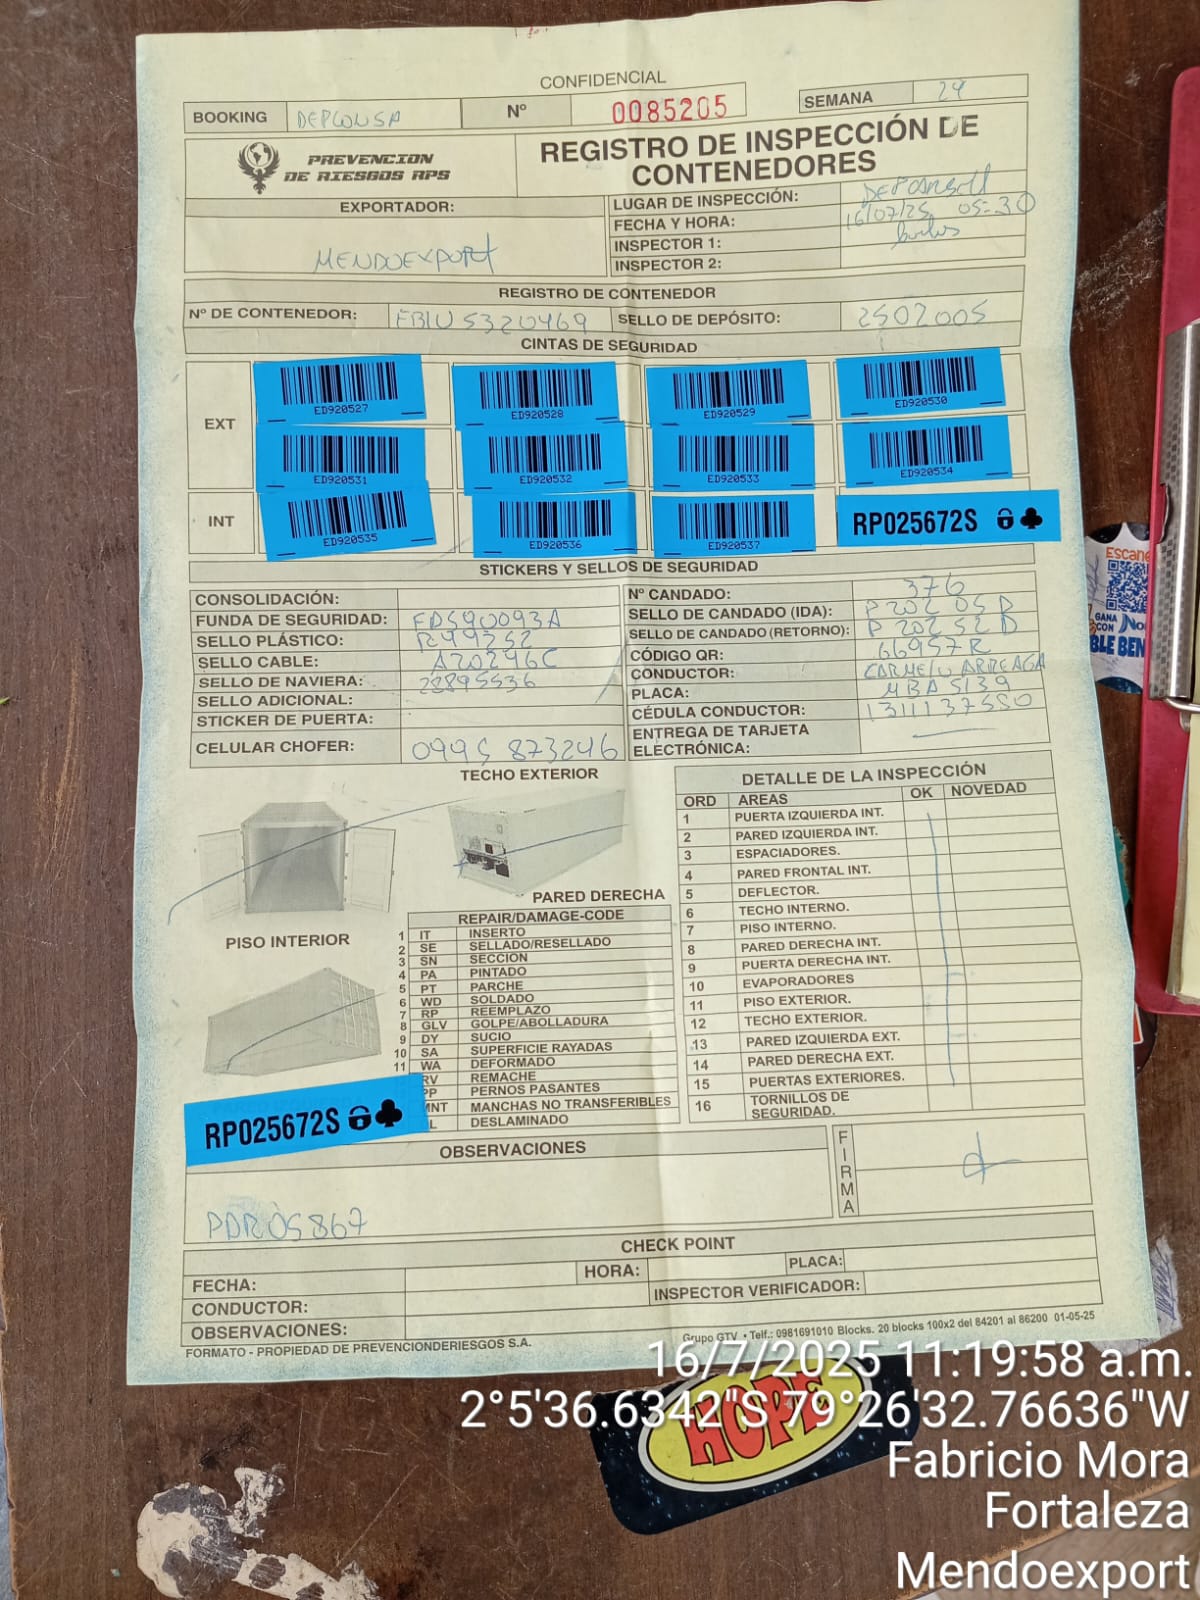 CONFIDENCIAL
BOOKING DEPCONSA Nº 0085205 SEMANA 29
PREVENCION DE RIESGOS RPS
REGISTRO DE INSPECCIÓN DE CONTENEDORES
EXPORTADOR:
MENDOEXPORT
LUGAR DE INSPECCIÓN:
FECHA Y HORA: 16/07/25 05:30
INSPECTOR 1:
INSPECTOR 2:
REGISTRO DE CONTENEDOR
Nº DE CONTENEDOR: FBIU 5320469 SELLO DE DEPÓSITO: 2502005
CINTAS DE SEGURIDAD
EXT
ED920527 ED920528 ED920529 ED920530
ED920531 ED920532 ED920533 ED920534
INT
ED920535 ED920536 ED920537 RP025672S
STICKERS Y SELLOS DE SEGURIDAD
CONSOLIDACIÓN:
FUNDA DE SEGURIDAD: FDS90093A
SELLO PLÁSTICO: R49352
SELLO CABLE: A20246C
SELLO DE NAVIERA: 22895536
SELLO ADICIONAL:
STICKER DE PUERTA:
CELULAR CHOFER: 0995 873246
Nº CANDADO: 376
SELLO DE CANDADO (IDA): P 202 05 D
SELLO DE CANDADO (RETORNO): P 202 52 D
CÓDIGO QR: 66957R
CONDUCTOR: CARMELO ARREAGA
PLACA: MBA 5139
CÉDULA CONDUCTOR: 1311137550
ENTREGA DE TARJETA ELECTRÓNICA:
TECHO EXTERIOR
PARED DERECHA
PISO INTERIOR
REPAIR/DAMAGE-CODE
1 IT INSERTO
2 SE SELLADO/RESELLADO
3 SN SECCION
4 PA PINTADO
5 PT PARCHE
6 WD SOLDADO
7 RP REEMPLAZO
8 GLV GOLPE/ABOLLADURA
9 DY SUCIO
10 SA SUPERFICIE RAYADAS
11 WA DEFORMADO
RV REMACHE
PP PERNOS PASANTES
MNT MANCHAS NO TRANSFERIBLES
L DESLAMINADO
RP025672S
DETALLE DE LA INSPECCIÓN
ORD AREAS OK NOVEDAD
1 PUERTA IZQUIERDA INT.
2 PARED IZQUIERDA INT.
3 ESPACIADORES.
4 PARED FRONTAL INT.
5 DEFLECTOR.
6 TECHO INTERNO.
7 PISO INTERNO.
8 PARED DERECHA INT.
9 PUERTA DERECHA INT.
10 EVAPORADORES
11 PISO EXTERIOR.
12 TECHO EXTERIOR.
13 PARED IZQUIERDA EXT.
14 PARED DERECHA EXT.
15 PUERTAS EXTERIORES.
16 TORNILLOS DE SEGURIDAD.
OBSERVACIONES
PDR05867
FIRMA
CHECK POINT
FECHA: HORA: PLACA:
CONDUCTOR: INSPECTOR VERIFICADOR:
OBSERVACIONES:
FORMATO - PROPIEDAD DE PREVENCIONDERIESGOS S.A.
Grupo GTV • Telf.: 0981691010 Blocks. 20 blocks 100x2 del 84201 al 86200 01-05-25
Escane
GANA CON
BLE BEN
HOPE
16/7/2025 11:19:58 a.m.
2°5'36.6342"S 79°26'32.76636"W
Fabricio Mora
Fortaleza
Mendoexport